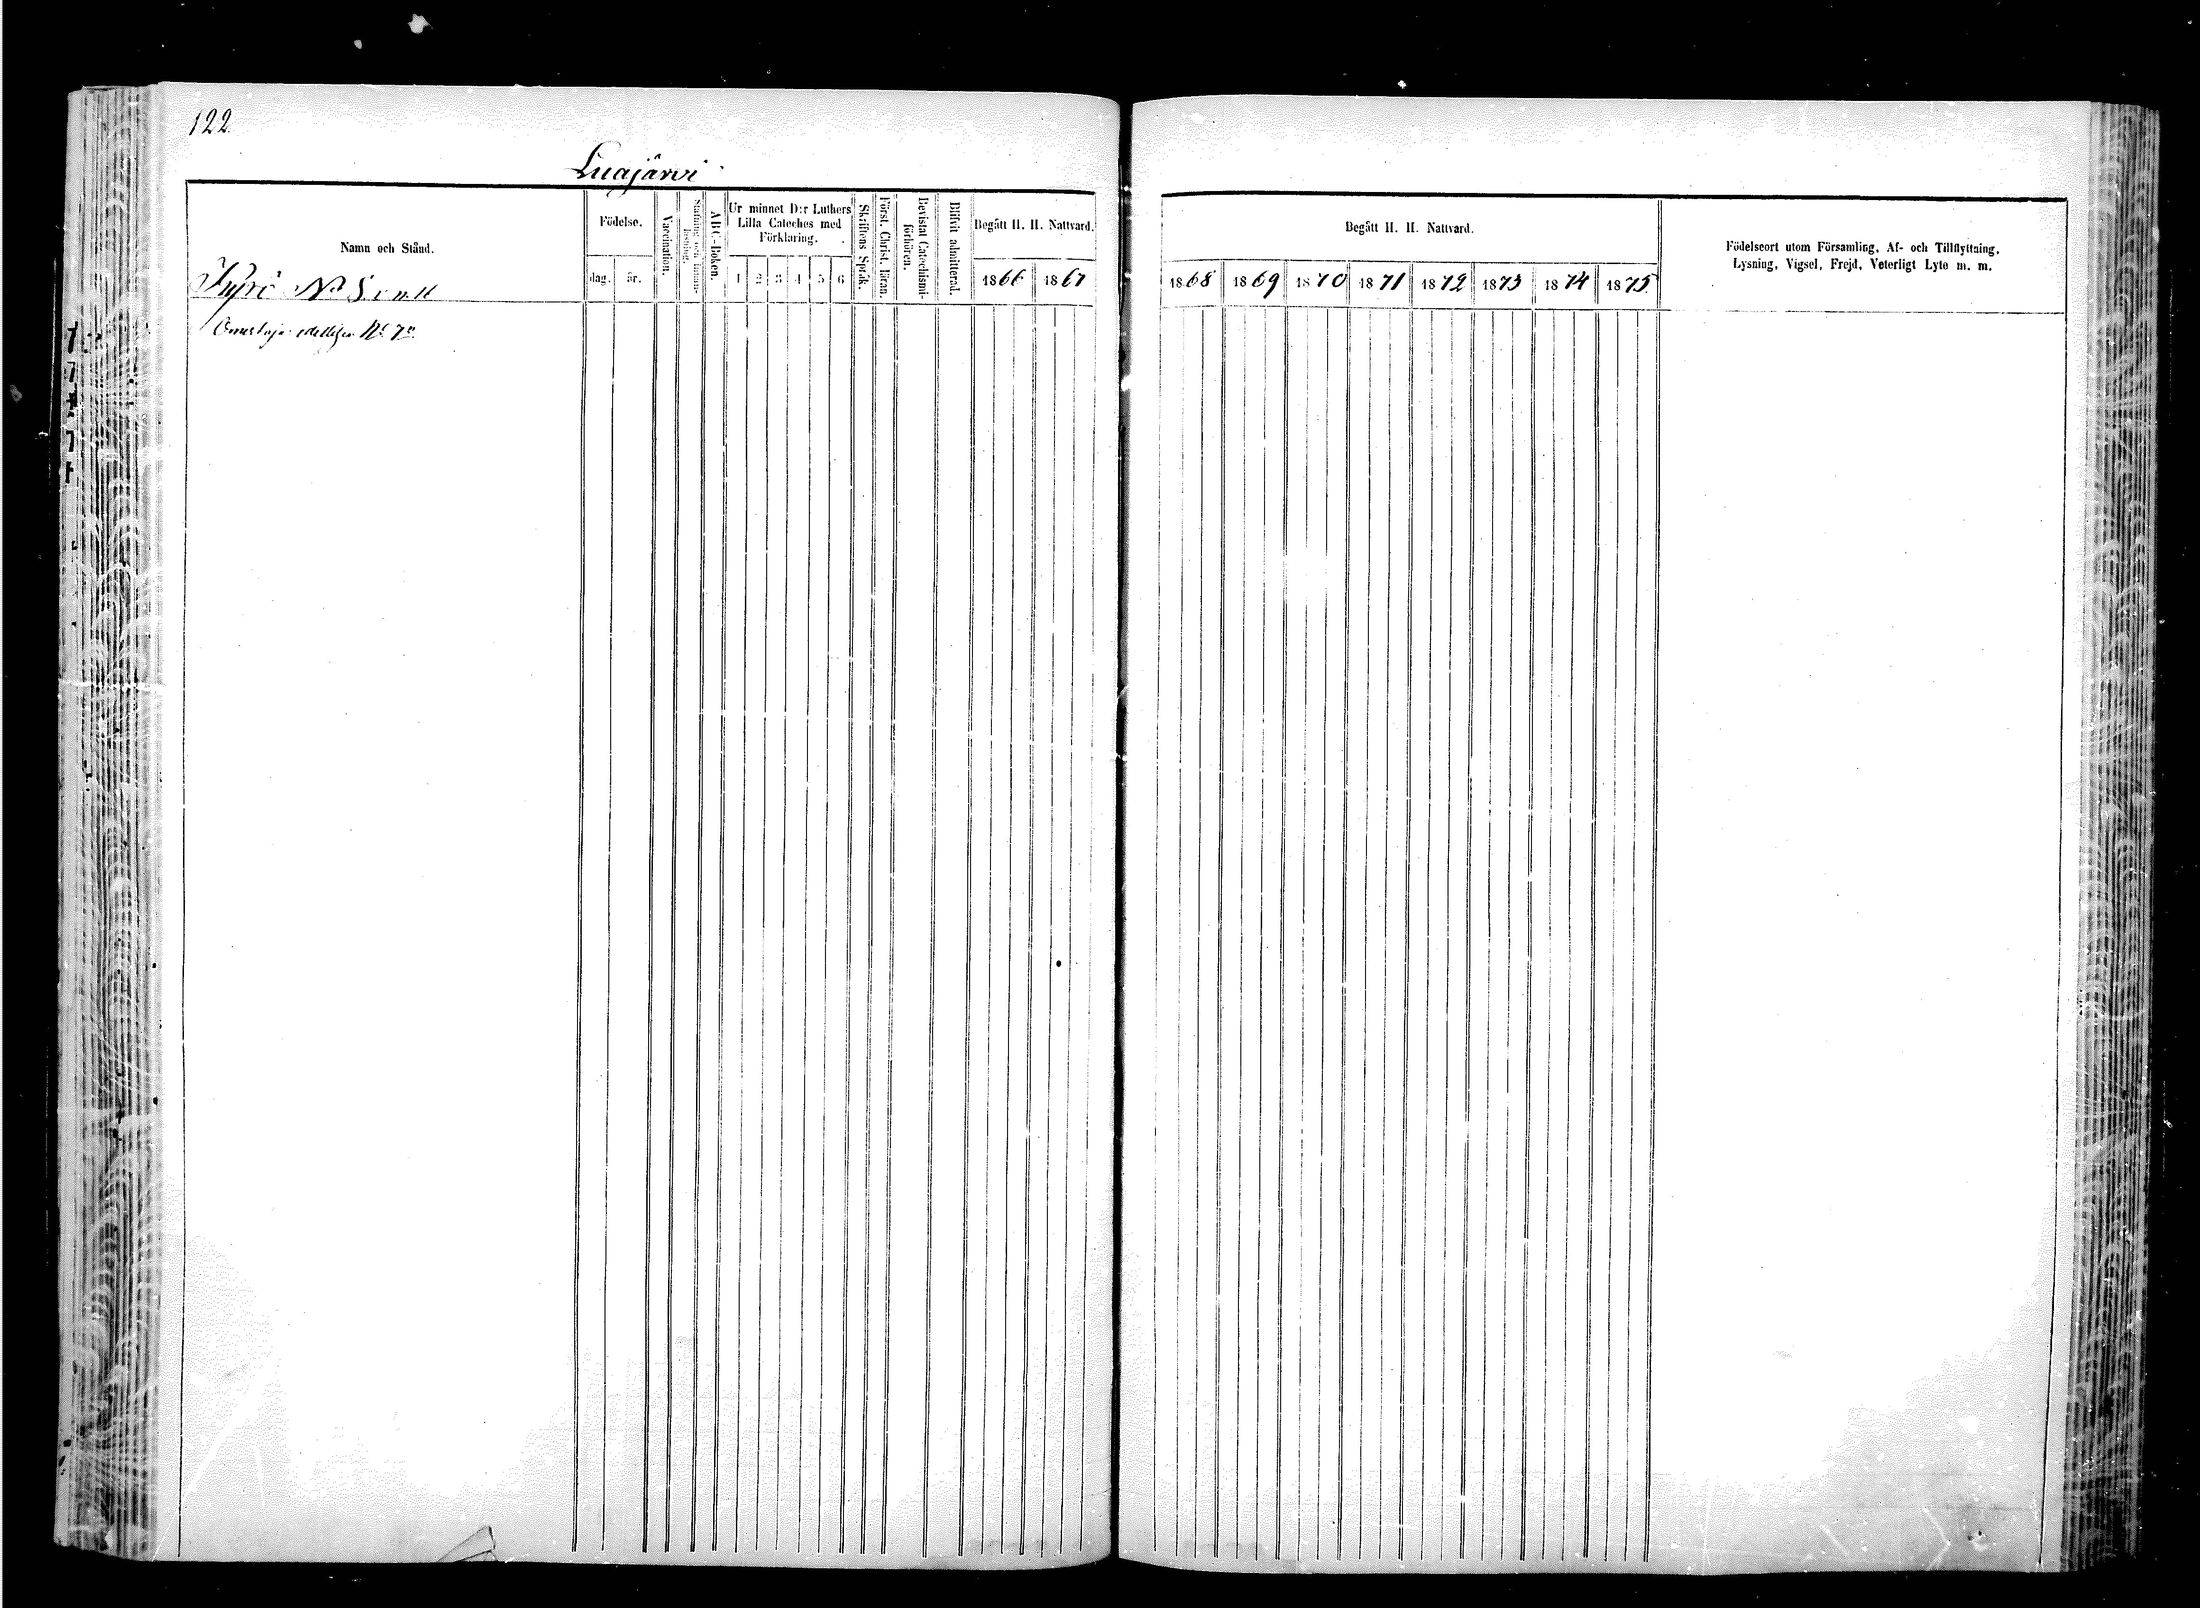 122
Luajärvi
Namn och Stånd.
Födelse.
dag. år.
Vaccination.
ABC-Boken.
Ur minnet D:r Luthers
Lilla Cateches med
Förklaring.
1 2 3 4 5 6
Skriftens Språk.
Först. Christ. läran.
Bevistat Catechismi-
förhören.
Blifvit admitterad.
Begått H. H. Nattvard.
1866 1867
Kyrö No 8
No 7
Begått H. H. Nattvard.
1868 1869 1870 1871 1872 1873 1874 1875
Födelseort utom Församling, Af- och Tillflyttning,
Lysning, Vigsel, Frejd, Veterligt Lyte m. m.